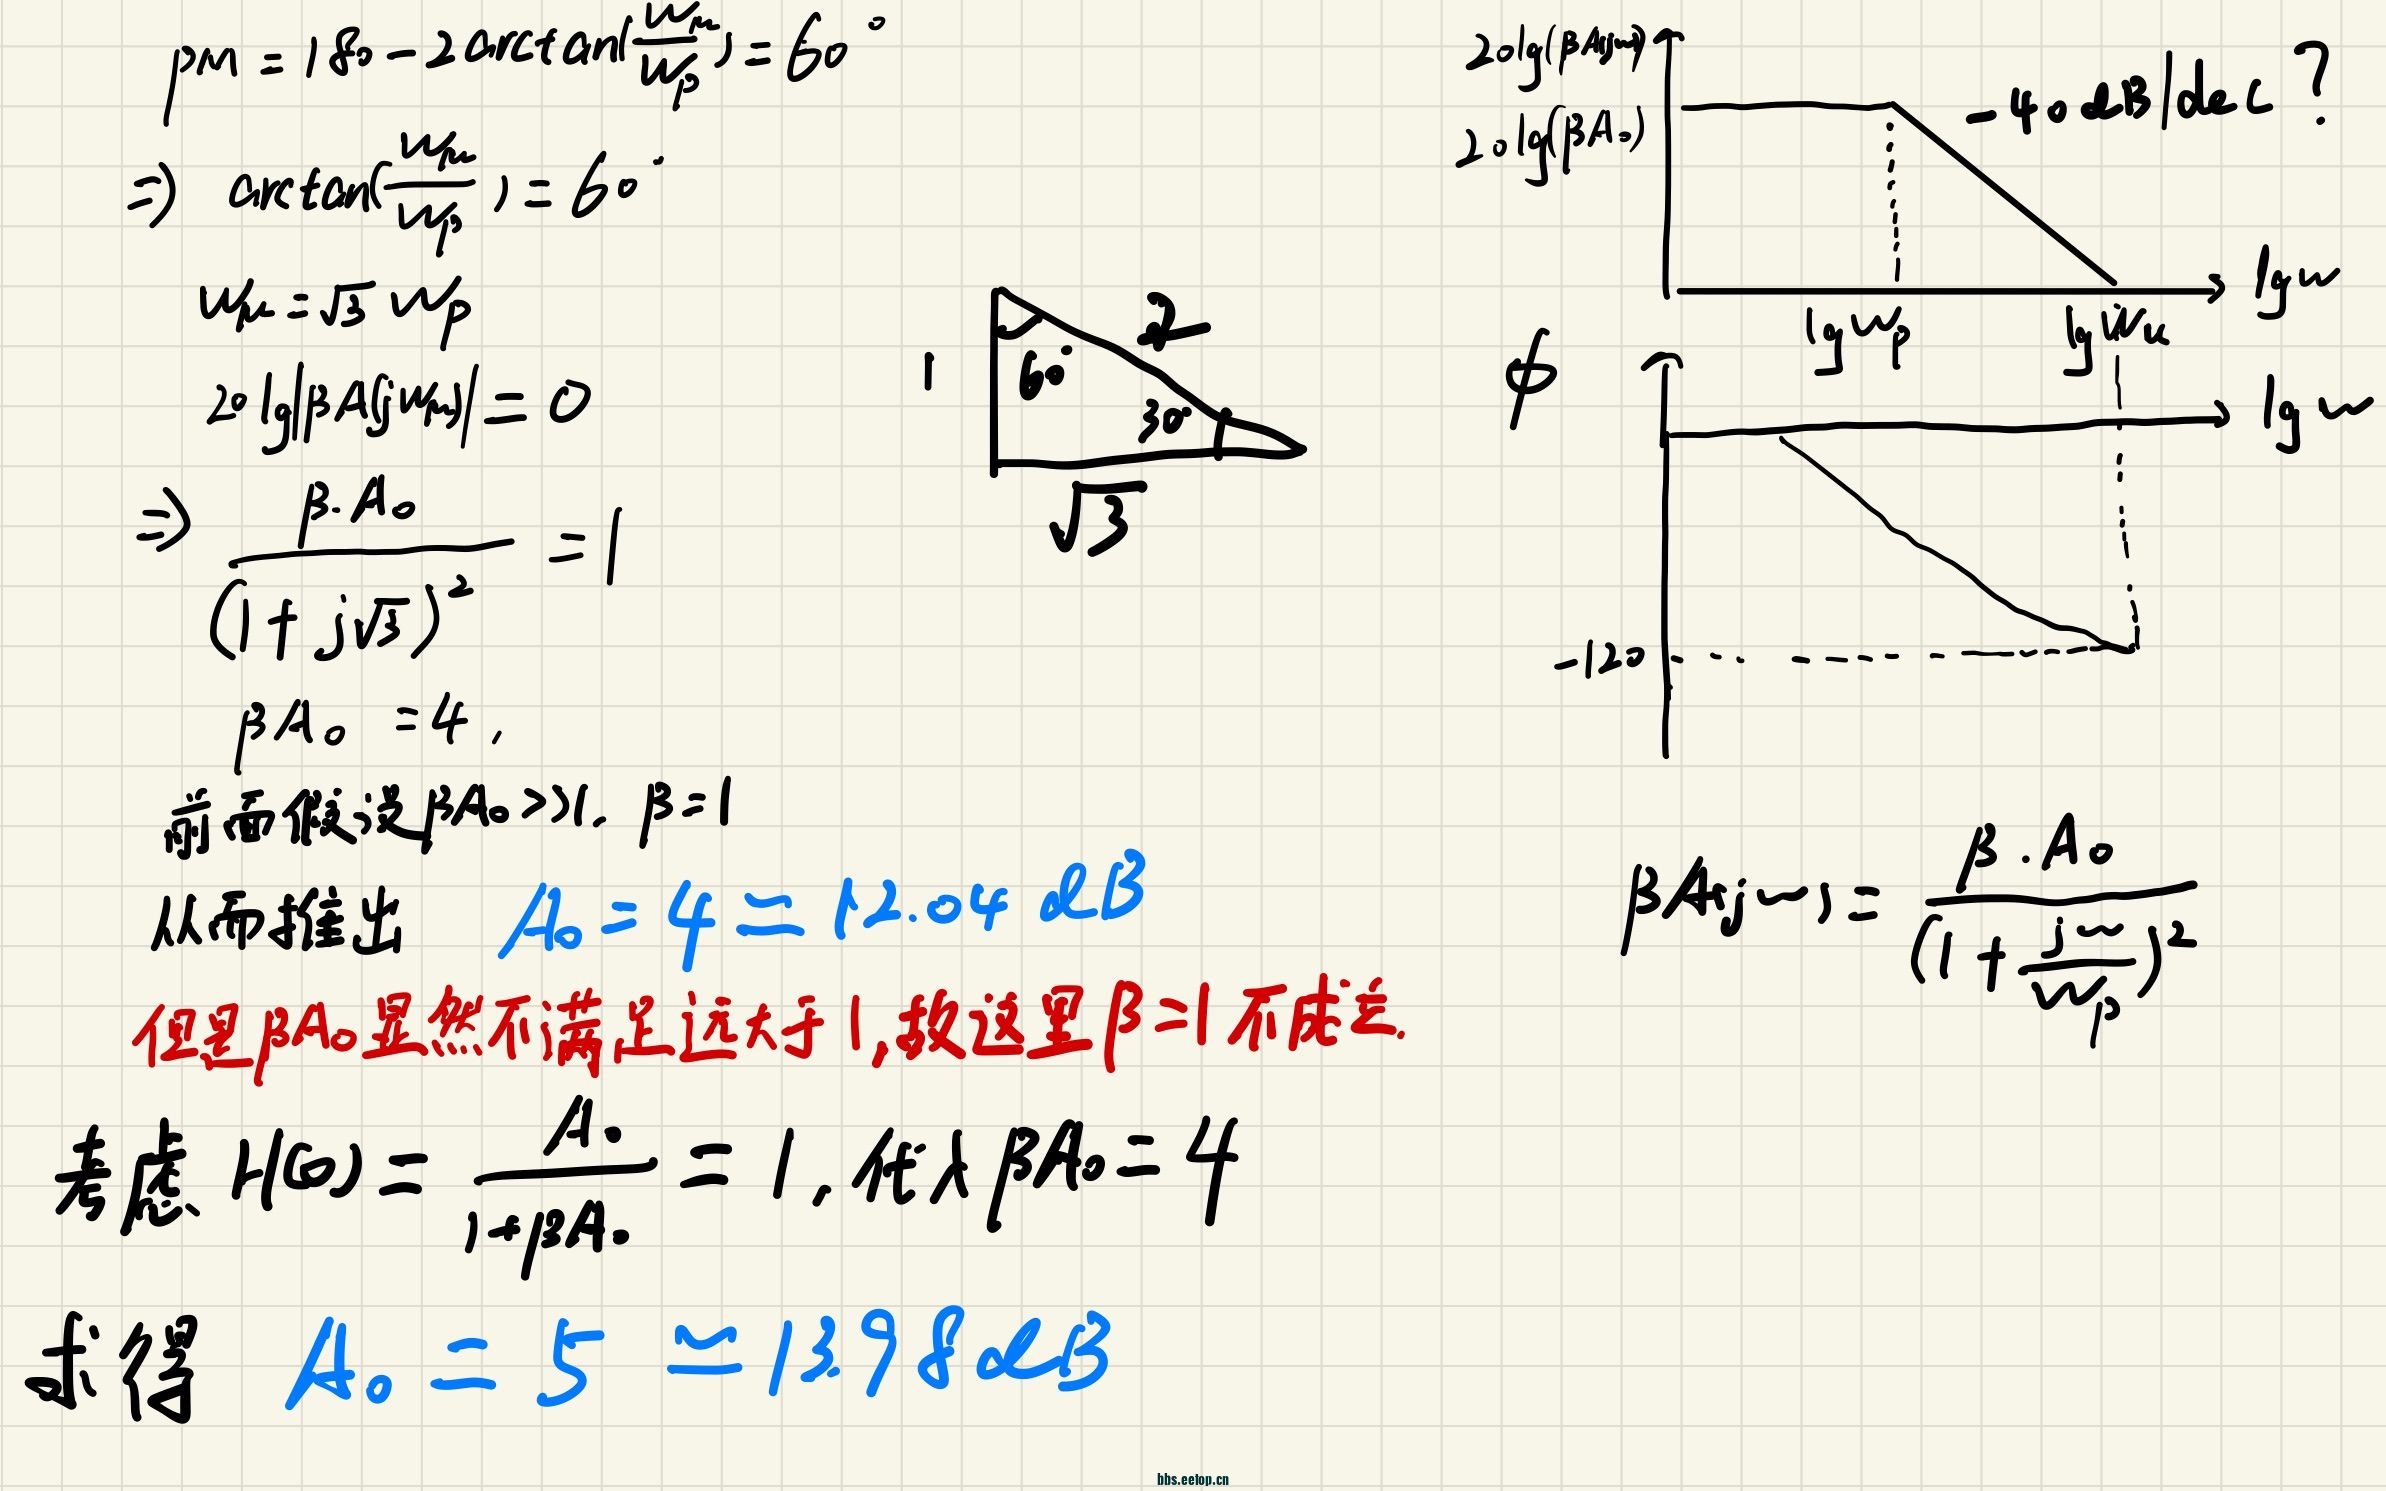 PM = 180 - 2arctan(Wμ/Wp) = 60°
⇒ arctan(Wμ/Wp) = 60°
Wμ = √3 Wp
20lg|βA(jWμ)| = 0
⇒ β·A₀/(1+j√3)² = 1
βA₀ = 4,
前面假设βA₀>>1, β=1
从而推出 A₀ = 4 ≃ 12.04 dB
但是βA₀显然不满足远大于1,故这里β=1不成立.
考虑 H(0) = A₀/(1+βA₀) = 1, 代入βA₀=4
求得 A₀ = 5 ≃ 13.98dB
1
60°
2
30°
√3
20lg(βA(jw))
20lg(βA₀)
-40dB/dec ?
lgw
lgWp
lgWu
ϕ
lgw
-120
βA(jw) = β·A₀/(1+jw/Wp)²
bbs.eetop.cn